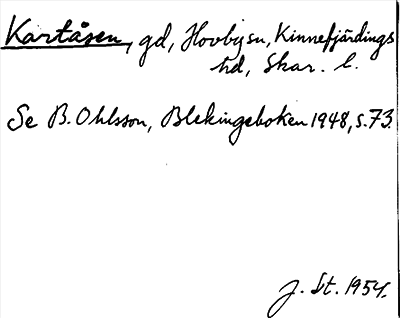 Kartåsen, gd, Hovby sn, Kinnefjärdings
hd, Skar. l.
Se B. Ohlsson, Blekingeboken 1948, s. 73.
J. St. 1954.